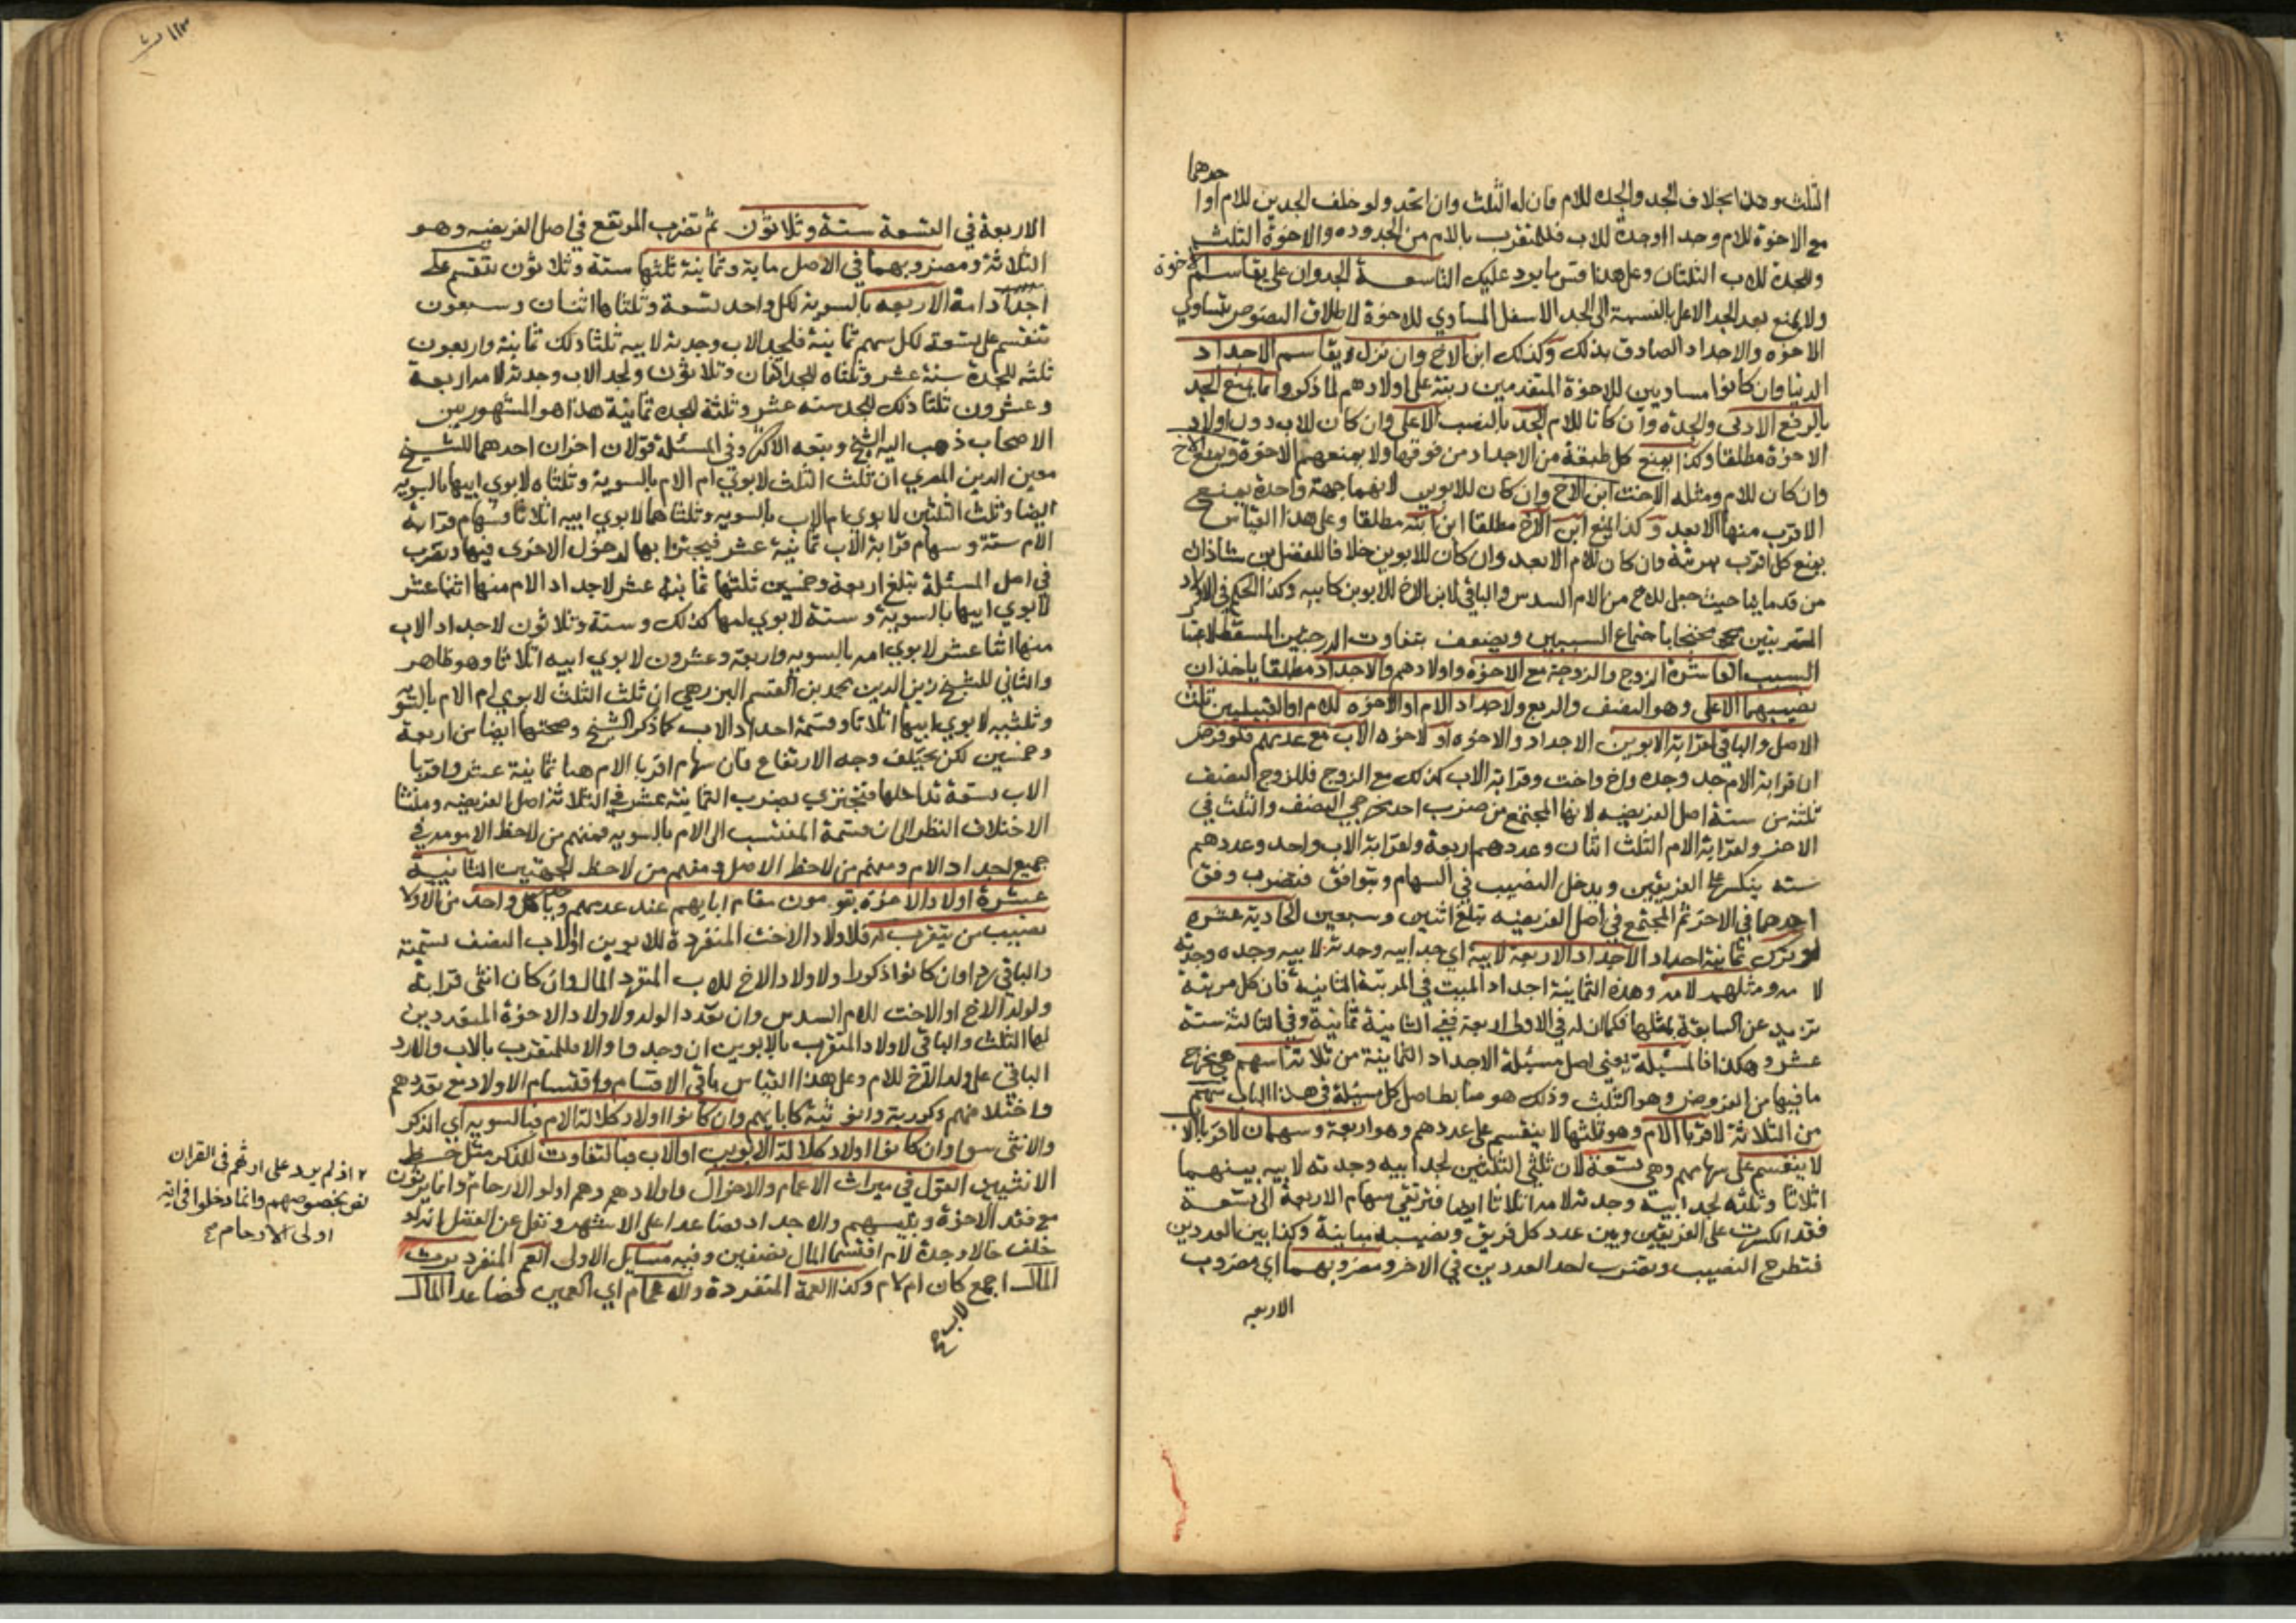 الثلث وهذا بخلاف الجد والجدة للام فان له الثلث وان اتحد ولو خلف الجدين للام او احدهما
مع الاخوة للام وجدا او جدة للاب فللمتقرب بالام من الجدودة والاخوة الثلث
وللجدة للاب الثلثان وعلى هذا قس ما يرد عليك التاسعة الجد وان علا يقاسم الاخوة
ولا يمنع بعد الجد الاعلى بالقسمة الى الجد الاسفل المساوي للاخوة لاطلاق النصوص بتساوي
الاخوة والاجداد الصادق بذلك وكذلك ابن الاخ وان نزل يقاسم الاجداد
الدنيا وان كانوا مساويين للاخوة المتقدمين رتبة على اولادهم لما ذكر وانما يمنع الجد
بالرفع الادنى والجدة وان كانا للام الجد بالنصب الاعلى وان كان للاب دون اولاد
الاخوة مطلقا وكذا يمنع كل طبقة من الاجداد من فوقها ولا يمنعهم الاخوة ويمنع الاخ
وان كان للام ومثله الاخت ابن الاخ وان كان للابوين لانهما جهة واحدة يمنع
الاقرب منها الابعد وكذا يمنع ابن الاخ مطلقا ابن ابنه مطلقا وعلى هذا القياس
يمنع كل اقرب بمرتبة وان كان للام الابعد وان كان للابوين خلافا للفضل بن شاذان
من قدمائنا حيث جعل للاخ من الام السدس والباقي لابن الاخ للابوين كابيه وكذا الحكم في الاولاد
المترتبين محتجا باجتماع السببين ويضعف بتفاوت الدرجتين المسقط لاعتبار
السبب العاشرة الزوج والزوجة مع الاخوة واولادهم والاجداد مطلقا ياخذان
نصيبهما الاعلى وهو النصف والربع ولاجداد الام او الاخوة للام او القبيلتين ثلث
الاصل والباقي لقرابة الابوين الاجداد والاخوة او لاخوة الاب مع عدمهم فلو فرض
ان قرابة الام جد وجدة واخ واخت وقرابة الاب كذلك مع الزوج فللزوج النصف
ثلثة من ستة اصل الفريضة لانها المجتمع من ضرب احد مخرجي النصف والثلث في
الاخر ولقرابة الام الثلث اثنان وعددهم اربعة ولقرابة الاب واحد وعددهم
ستة ينكسر على الفريقين ويدخل النصيب في السهام ويتوافق فتضرب وفق
احدهما في الاخر ثم المجتمع في اصل الفريضة تبلغ اثنين وسبعين الحادية عشرة
لو ترك ثمانية اجداد الاجداد الاربعة لابيه اي جد ابيه وجدته لابيه وجده وجدته
لامه ومثلهم لامه وهذه الثمانية اجداد الميت في المرتبة الثانية فان كل مرتبة
تزيد عن السابقة بمثلها فكما ان له في الاولى اربعة ففي الثانية ثمانية وفي الثالثة ستة
عشر وهكذا فالمسئلة يعني اصل مسئلة الاجداد الثمانية من ثلاثة اسهم هي مخرج
ما فيها من الفروض وهو الثلث وذلك هو ضابط اصل كل مسئلة في هذا الباب سهم
من الثلاثة لاقربا الام وهو ثلثها لا ينقسم على عددهم وهو اربعة وسهمان لاقربا الاب
لا ينقسم على سهامهم وهي تسعة لان ثلثي الثلثين لجد ابيه وجدته لابيه بينهما
اثلاثا وثلثه لجد ابيه وجدته لامه اثلاثا ايضا فترتقي سهام الاربعة الى تسعة
فقد انكسرت على الفريقين وبين عدد كل فريق ونصيبه مباينة وكذا بين العددين
فتطرح النصيب وتضرب احد العددين في الاخر ومضروبهما اي مضروب
الاربعه
الاربعة في التسعة ستة وثلاثون ثم تضرب المرتفع في اصل الفريضة وهو
الثلاثة ومضروبهما في الاصل ماية وثمانية ثلثها ستة وثلاثون تنقسم على
اجداد امه الاربعه بالسوية لكل واحد تسعة وثلثاها اثنان وسبعون
تنقسم على تسعة لكل سهم ثمانية فلجد الاب وجدته لابيه ثلثا ذلك ثمانية واربعون
ثلثه للجدة ستة عشر وثلثاه للجد اثنان وثلاثون ولجد الاب وجدته لامه اربعة
وعشرون ثلثا ذلك للجد ستة عشر وثلثه للجدة ثمانية هذا هو المشهور بين
الاصحاب ذهب اليه الشيخ وتبعه الاكثر وفي المسئلة قولان اخران احدهما للشيخ
معين الدين المصري ان ثلث الثلث لابوي ام الام بالسوية وثلثاه لابوي ابيها بالسوية
ايضا وثلث الثلثين لابوي ام الاب بالسوية وثلثاهما لابوي ابيه اثلاثا وسهام قرابة
الام ستة وسهام قرابة الاب ثمانية عشر فيجتزا بها لدخول الاخرى فيها وتضرب
في اصل المسئلة تبلغ اربعة وخمسين ثلثها ثمانية عشر لاجداد الام منها اثنا عشر
لابوي ابيها بالسوية وستة لابوي امها كذلك وستة وثلاثون لاجداد الاب
منها اثنا عشر لابوي امه بالسوية واربعة وعشرون لابوي ابيه اثلاثا وهو ظاهر
والثاني للشيخ زين الدين محمد بن القسم البرزهي ان ثلث الثلث لابوي ام الام بالسوية
وثلثيه لابوي ابيها اثلاثا وقسمة اجداد الاب كما ذكر الشيخ وصحتها ايضا من اربعة
وخمسين لكن يختلف وجه الارتفاع فان سهام اقربا الام هنا ثمانية عشر واقربا
الاب تسعة تداخلها فيجتزي بضرب الثمانية عشر في الثلاثة اصل الفريضة ومنشا
الاختلاف النظر الى ان قسمة المنتسب الى الام بالسوية فمنهم من لاحظ الامومة في
جميع اجداد الام ومنهم من لاحظ الاصل ومنهم من لاحظ الجهتين الثانية
عشرة اولاد الاخوة يقومون مقام ابايهم عند عدمهم وياخذ كل واحد من الاولاد
نصيب من يتقرب به فلاولاد الاخت المنفردة للابوين او للاب النصف تسمية
والباقي ردا وان كانوا ذكورا ولاولاد الاخ للاب المنفرد المال وان كان انثى قرابة
ولولد الاخ او الاخت للام السدس وان تعدد الولد ولاولاد الاخوة المتعددين
لها الثلث والباقي لاولاد المتقرب بالابوين ان وجدوا والا فللمتقرب بالاب والا رد
الباقي على ولد الاخ للام وعلى هذا القياس باقي الاقسام واقتسام الاولاد مع تعددهم
واختلافهم ذكورية وانوثية كابايهم وان كانوا اولاد كلالة الام فبالسوية اي الذكر
والانثى سوا وان كانوا اولاد كلالة الابوين او الاب فبالتفاوت للذكر مثل حظ
الانثيين القول في ميراث الاعمام والاخوال واولادهم وهم اولو الارحام وانما يرثون
مع فقد الاخوة وبنيهم والاجداد فصاعدا على الاشهر ونقل عن الفضل انه لو
خلف خالا وجدة لام اقتسما المال نصفين وفيه مسايل الاولى العم المنفرد يرث
المال اجمع كان ام لام وكذا العمة المنفردة وللاعمام اي العمين فصاعدا المال
لاب
٢ اذ لم يرد على ارثهم في القران
نص بخصوصهم وانما دخلوا في اية
اولي الارحام صح